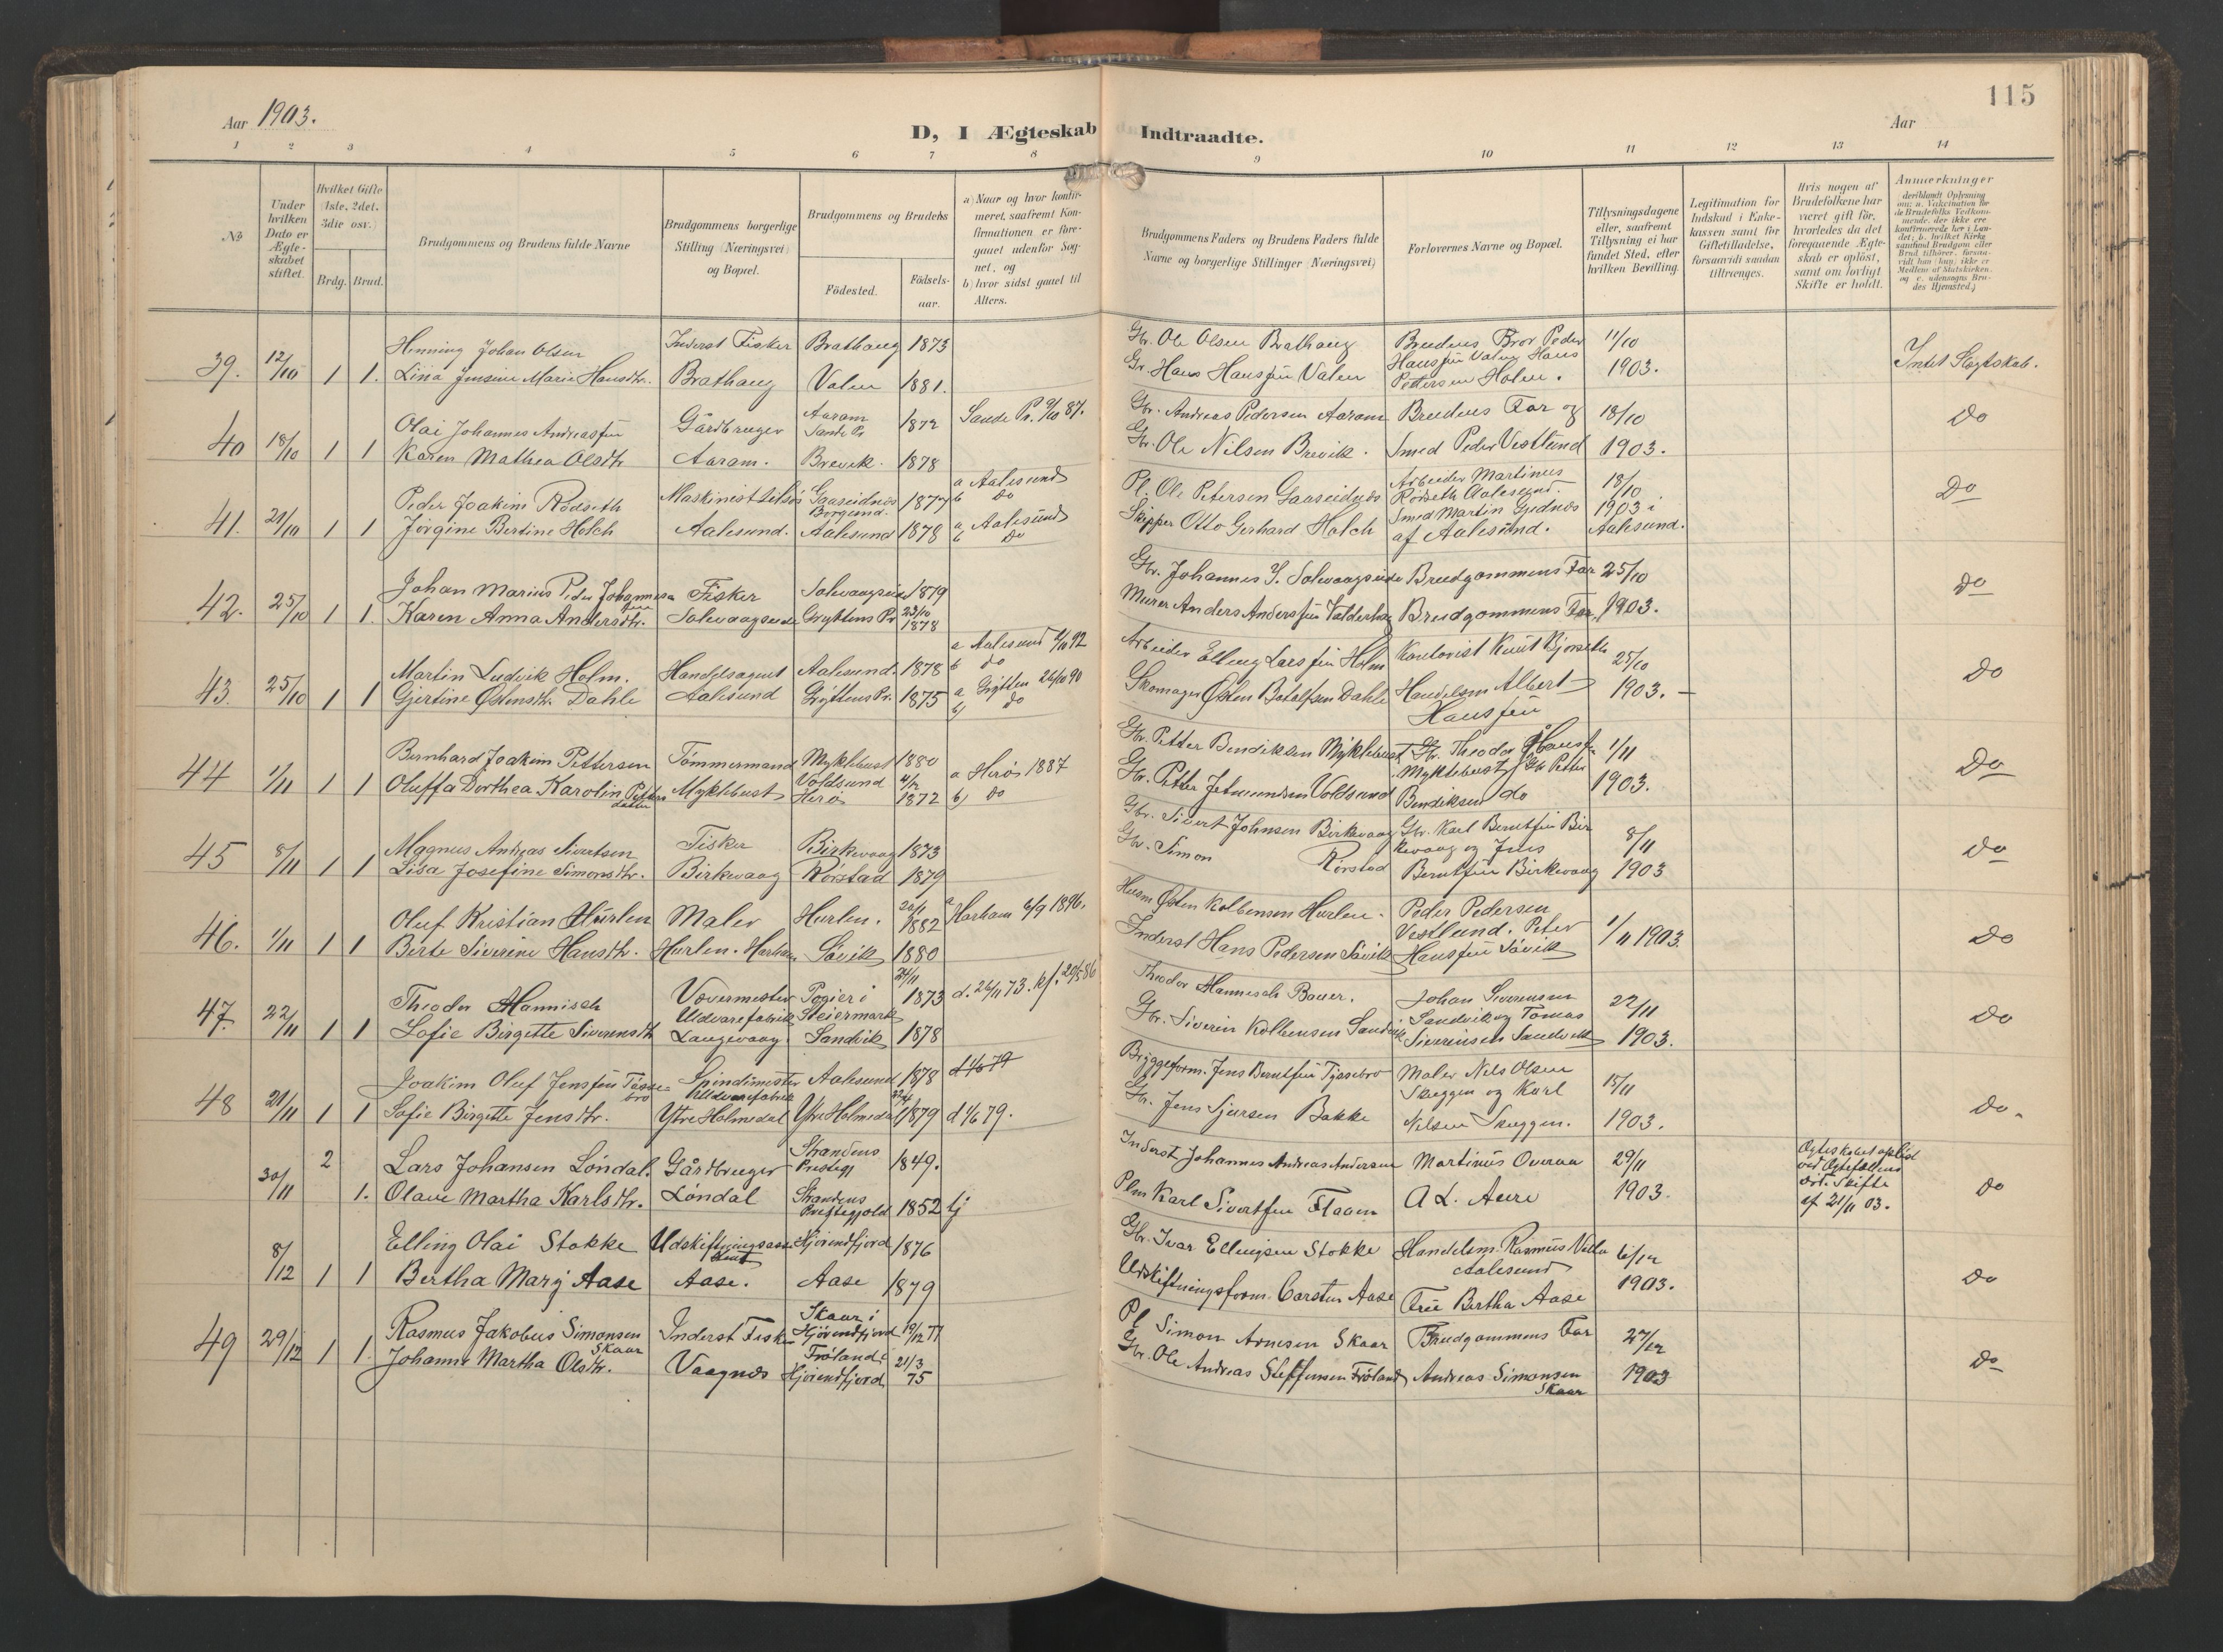 115
Aar 1903.
D, I Ægteskab Indtraadte.
Aar
1 2 3 4 5 6 7 8 9 10 11 12 13 14
No
Under hvilken Dato er Ægteskabet stiftet.
Hvilket Gifte (1ste, 2det, 3die osv.)
Brdg. Brud.
Brudgommens og Brudens fulde Navne
Brudgommens borgerlige Stilling (Næringsvei) og Bopæl.
Brudgommens og Brudens
Fødested.
Fødselsaar.
a) Naar og hvor konfirmeret, saafremt Konfirmationen er foregaaet udenfor Sognet, og
b) hvor sidst gaaet til Alters.
Brudgommens Faders og Brudens Faders fulde Navne og borgerlige Stillinger (Næringsvei)
Forlovernes Navne og Bopæl.
Tillysningsdagene eller, saafremt Tillysning ei har fundet Sted, efter hvilken Bevilling.
Legitimation for Indskud i Enkekassen samt for Giftetilladelse, forsaavidt saadan tiltrænges.
Hvis nogen af Brudefolkene har været gift før, hvorledes da det foregaaende Ægteskab er opløst, samt om lovligt Skifte er holdt.
Anmerkninger
39. 12/10 1 1.
Henning Johan Olsen
Lina Jensine Marie Hansdtr.
Inderst Fisker
Brathaug
Brathaug 1873
Valen 1881.
Gbr. Ole Olsen Brathaug
Gr. Hans Hansen Valen
Brudens Bror Peder
Hansen Valen Hans
Pettersen Holen.
11/10
1903.
Intet Slegtskab.
40 18/10 1 1
Olai Johannes Andreassen
Karen Mathea Olsdtr
Gårdbruger
Aaram.
Aaram
Sande Pr 1872
Brevik. 1878
Sande Pr. 9/10 87.
Gbr. Andreas Pedersen Aaram
Gbr. Ole Nilsen Brevik.
Brudens Far og
Smed Peder Vestlund
18/10
1903.
Do
41. 21/10 1 1
Peder Joakim Rødseth
Jørgine Bertine Holch
Maskinist tilsøs
Aalesund.
Gaaseidnes
Borgund. 1877
Aalesund 1878
a Aalesund
b do
a Aalesund
b do
Pl. Ole Petersen Gaaseidnes
Skipper Otto Gerhard Holch
Arbeider Martinus
Rødseth Aalesund.
Smed Martin Gjednes
af Aalesund.
18/10
1903 i
Aalesund.
Do
42. 25/10 1 1.
Johan Marius Peder Johannessen
Karen Anna Andersdtr.
Fisker
Solevaagseide
Solevaagseide 1879
Gryttens Pr 23/10 1878
Gbr. Johannes J. Solevaagseide
Murer Anders Andersen Valderhaug
Brudgommens Far
Brudgommens Far
25/10
1903.
Do
43. 25/10 1 1
Martin Ludvik Holm.
Gjertine Østensdtr. Dahle
Handelsagent
Aalesund
Aalesund. 1878
Gryttens Pr. 1875
a Aalesund 2/10 92
b do
a Grytten 26/10 90
b) do
Arbeider Elling Larssen Holm
Skomager Østen Botolfsen Dahle
Kontorist Knut Bjørseth
Handelsm Albert
Hanssen
25/10
1903. —
Do
44 1/11 1 1
Bernhard Joakim Pettersen
Oluffa Dorthea Karolin Petters
datter
Tømmermand
Myklebust
Myklebust 1880
Voldsund
Herø 4/12 1872
a Herø 1887
b) do
Gbr. Petter Bendiksen Myklebust
Gbr. Petter Jetmundsen Voldsund
Gbr. Theodor Hansen
Myklebust, Gbr Petter
Bendiksen do
1/11
1903.
Do
45 8/11 1 1
Magnus Andreas Sivertsen
Lisa Josefine Simonsdtr.
Fisker
Birkevaag
Birkevaag 1873
Rørstad 1879
Gbr. Sivert Johnsen Birkevaag
Gbr. Simon Rørstad
Gbr. Karl Berntsen Bir
kevaag og Jens
Berntsen Birkevaag
8/11
1903
Do
46. 1/11 1 1
Oluf Kristian Hurlen
Birte Siverine Hansdtr.
Maler
Hurlen. Harham
Hurlen. 1882
Søvik 1880
a Harham 6/9 1896.
Husm Østen Kolbensen Hurlen.
Inderst Hans Pedersen Søvik
Peder Pedersen
Vestlund. Peter
Hanssen Søvik
1/11 1903.
Do
47. 22/11 1 1
Theodor Hannisch
Sofie Birgitte Siverensdtr
Vævermester
Uldvarefabrik
Langevaag.
Pogier i
Steiermark 24/11 1873
Sandvik 1878
d. 26/11 73. kf. 20/5 86
Theodor Hannisch Bauer.
Gbr. Siverin Kolbensen Sandvik
Johan Siverensen
Sandvik og Tomas
Siverinsen Sandvik
22/11
1903.
Do
48 21/11 1 1
Joakim Oluf Jenssen Tøsse=
bro
Sofie Birgitte Jensdtr.
Spindimester
Uldvarefabrik
Ytre Holmedal
Aalesund 1878
Ytre Holmedal 1879
d 1/6 79
d 1/6 79.
Bryggeform. Jens Berntsen Tyssebro
Gbr. Jens Sjursen Bakke
Maler Nels Olsen
Skuggen og Karl
Nilsen Skuggen.
15/11
1903.
Do.
30/11 2 1.
Lars Johansen Løndal.
Olave Martha Karlsdtr.
Gårdbruger
Løndal
Strandens
Prestegj 1849.
Strandens
Prestegjeld 1852
Inderst Johannes Andreas Andersen
Plm Karl Sivertsen Flaam
Martinus Overaa
A L. Aure
29/11
1903.
Egteskabet opløst
ved Egtefællens
død. Skifte
af 21/11 03.
Do
8/12 1 1
Elling Olai Stokke
Bertha Marj Aase
Udskiftningsassi
stent
Aase.
Hjørendfjord 1876
Aase 1879
Gbr. Ivar Ellingsen Stokke
Udskiftningsform. Carsten Aase
Handelsm. Rasmus Velle
Aalesund
Frue Bertha Aase
6/12
1903.
Do
49 29/12 1 1.
Rasmus Jakobus Simonsen
Skaar
Johanne Martha Olsdtr.
Inderst Fisker
Vaagnes
Skaar i
Hjørendfjord 19/12 77
Frøland i
Hjørendfjord 21/3 75
Pl Simon Arnesen Skaar
Gbr. Ole Andreas Steffensen Frøland
Brudgommens Far
Andreas Simonsen
Skaar
27/12
1903
Do